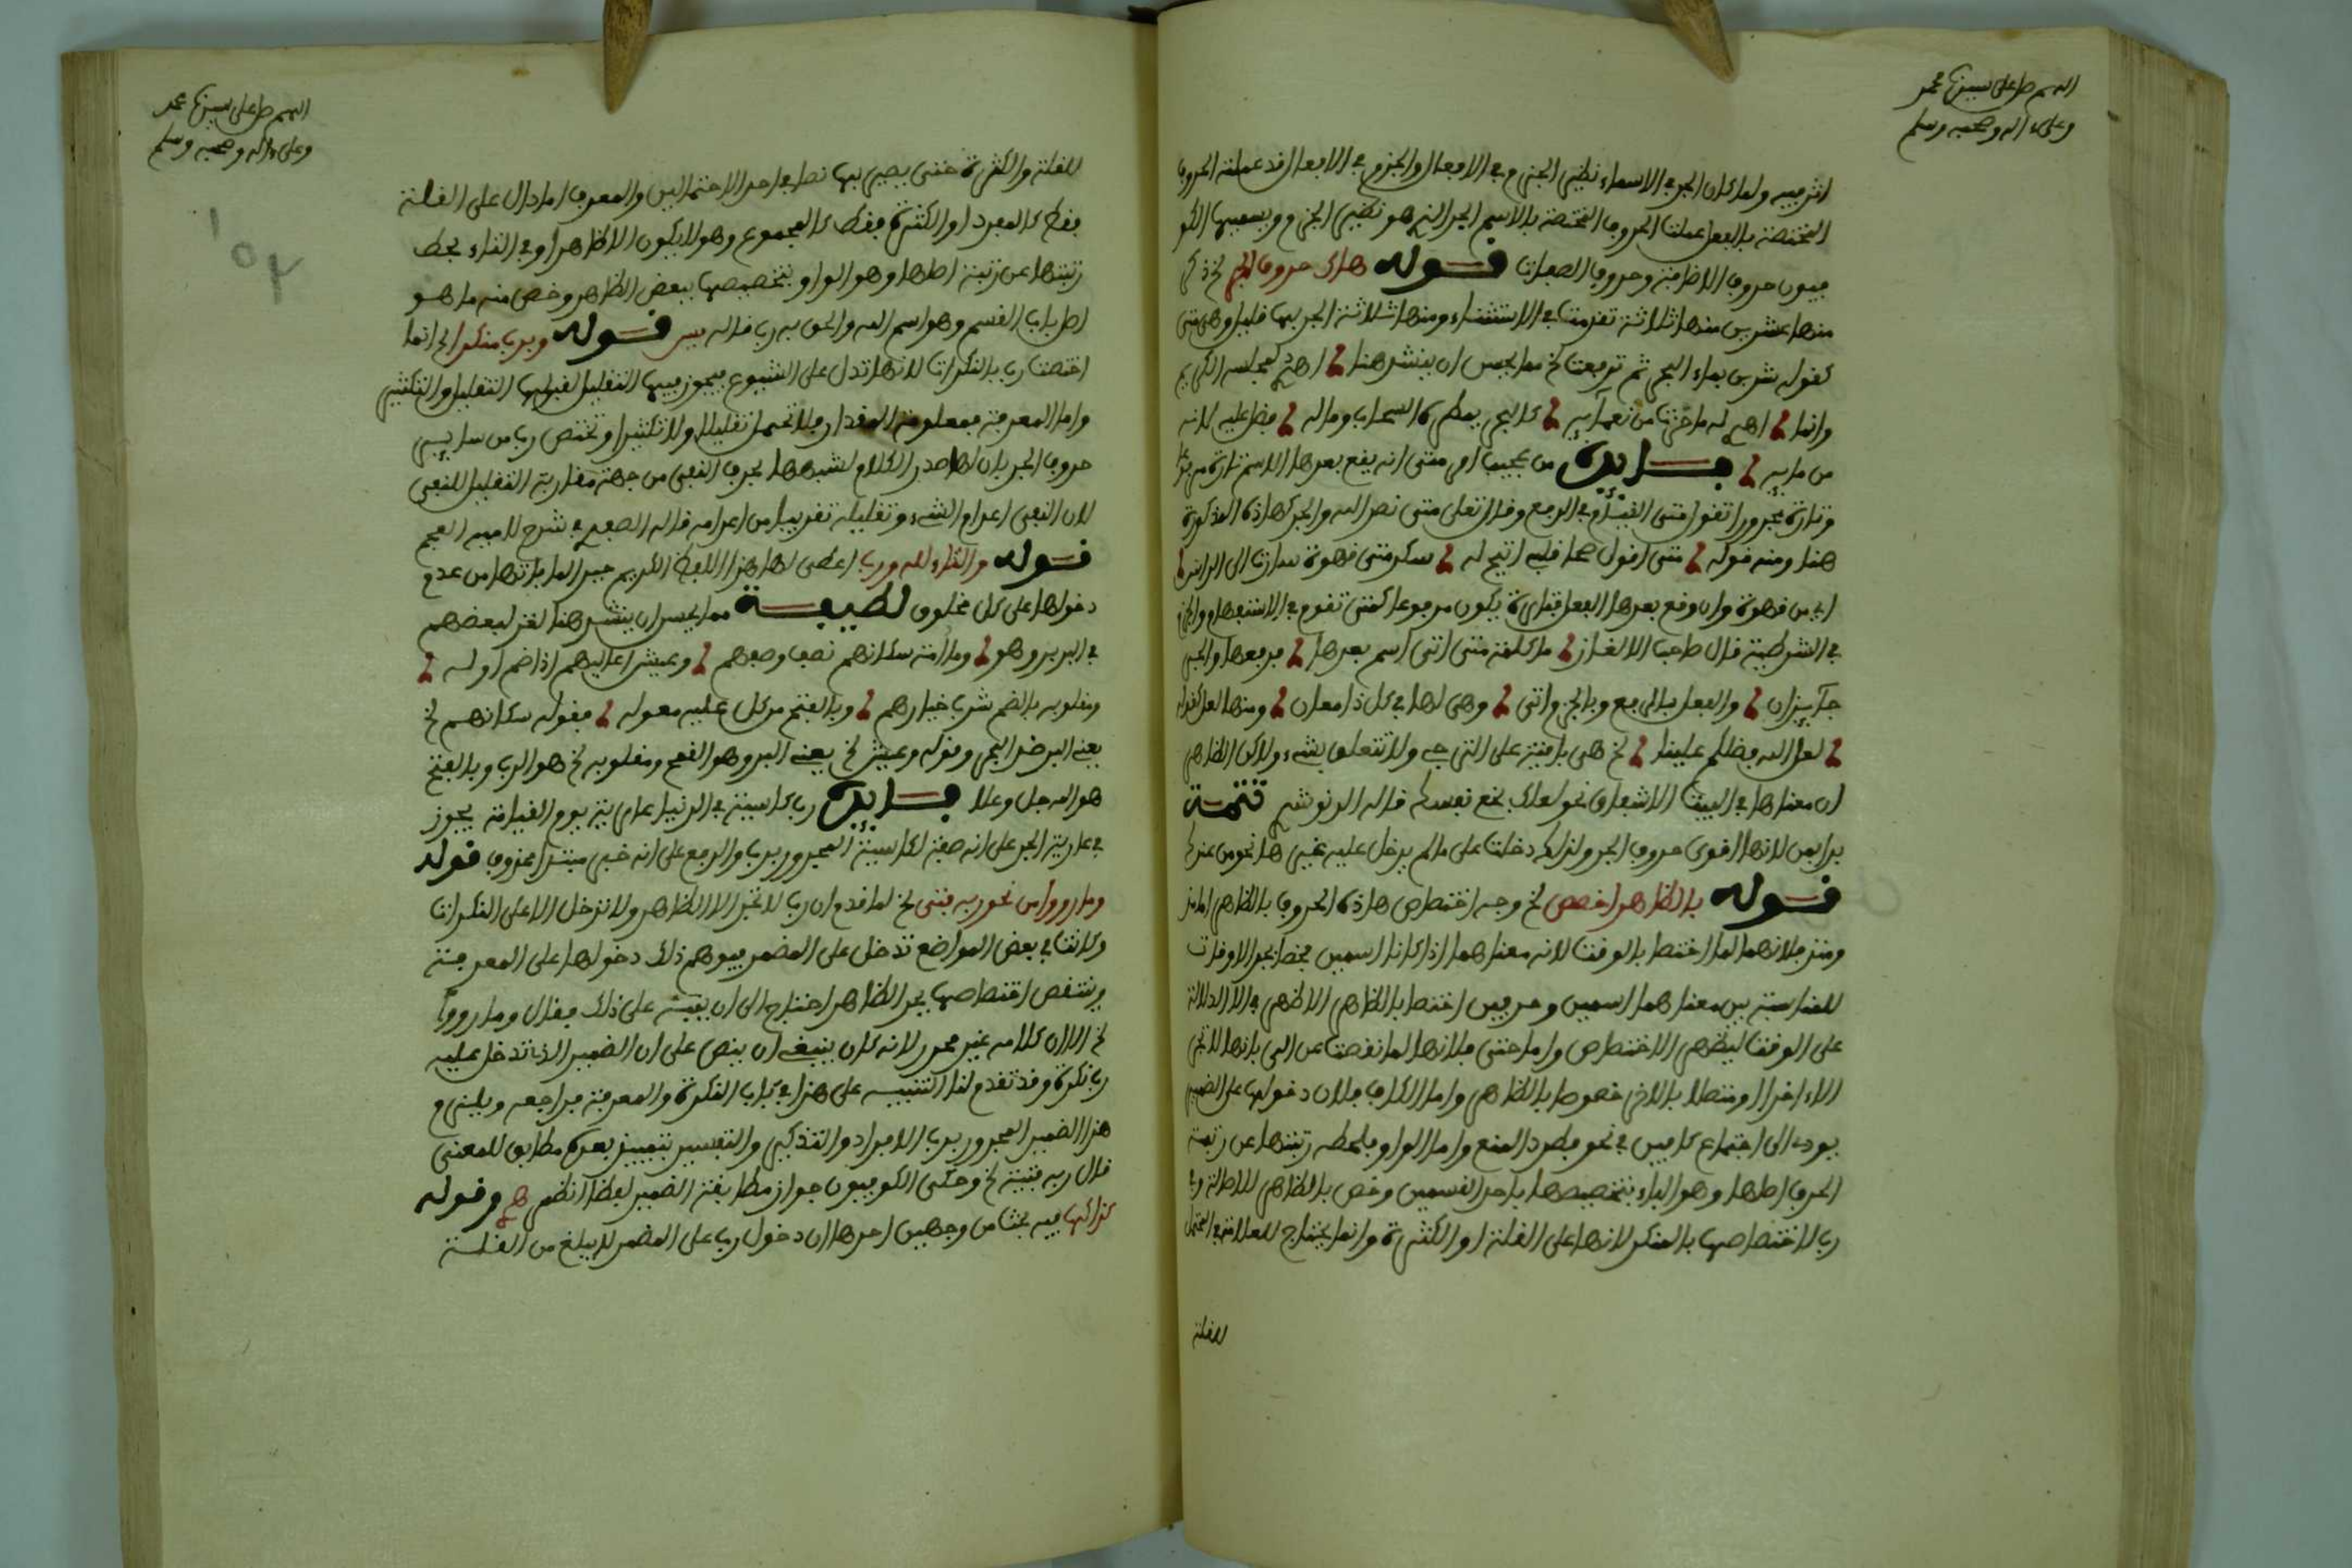 اللهم صل على سيدنا محمد
وعلى ءاله وصحبه وسلم
اثر فيه ولما كان الجر في الاسماء نظير الجزم في الافعال والجزم في الافعال قد عملته الحروف
المختصة بالفعل عملت الحروف المختصة بالاسم الجر الذي هو نظير الجزم ويسميها الكو
فيون حروف الاضافة وحروف الصفات قوله هاك حروف الجر لخ ذكر
منها عشرين منها ثلاثة تقدمت في الاستثناء ومنها ثلاثة الجر بها قليل وهي متى
كقوله شربن بماء البحر ثم ترفعت لخ مما يحسن ان ينشر هنا اهدي لمجلسه الكريم
وانما اهدي له ما حزت من نعمآئه كالبحر يمطره السحاب وما له فضل عليه لانه
من مايه فايدة من عجيب امر متى انه يقع بعدها الاسم تارة مرفوعا
وتارة مجرورا تقول متى القيام في الرفع وقال تعلى متى نصر الله والجر كهاذه المذكورة
هنا ومنه قوله متى اقول صحا قلبي اتيح له سكر متى قهوة سارت الى الراس
اي من قهوة وان وقع بعدها الفعل فتارة يكون مرفوعا كمتى تقوم في الاستفهام والجزم
في الشرطية قال صاحب الالغاز ما كلمة متى اتى اسم بعدها فرفعها والجر
جآئزان والفعل بالرفع وبالجزم اتى وهي لها في كل ذا معان ومنها لعل كقوله
لعل الله فضلكم علينا لخ هي باقية على الترجي ولا تتعلق بشيء ولاكن الظاهر
ان معناها في البيت الاشفاق نحو لعلك بخع نفسك قاله الدنوشري تتمة
بدا بمن لانها اقوى حروف الجر ولذلك دخلت على ما لم يدخل عليه غيرها نحو من عندك
قوله بالظاهر اخصص لخ وجه اختصاص هاذه الحروف بالظاهر اما مذ
ومنذ فلانهما لما اختصا بالوقت لانه معناهما اذا كانا اسمين فخصا بجر الاوقات
للمناسبة بين معناهما اسمين وحرفين اختصا بالظاهر الاظهر في الدلالة
على الوقت ليظهر الاختصاص واما حتى فلانها لما نقصت عن الى بانها لا تجر
الا ءاخرا او متصلا بالاخر خصوها بالظاهر واما الكاف فلان دخولها على الضمير
يودي الى اجتماع كافين في نحو فطرد المنع واما الواو فلحطه رتبتها عن رتبة
الحرف اصلها وهو الباء بتخصيصها باحد القسمين وخص بالظاهر للاصالة وفي
رب لاختصاصها بالمنكر لانها على القلة او الكثرة وانما يحتاج للعلامة في المحتمل
للقلة
اللهم صل على سيدنا محمد
وعلى ءاله وصحبه وسلم
للقلة والكثرة حتى يصير بها نصا في احد الاحتمالين والمعرف اما دال على القلة
فقط كالمفرد او الكثرة فقط كالمجموع وهو لا يكون الا ظاهرا وفي التاء بحط
رتبتها عن رتبة اصلها وهو الواو بتخصيصها ببعض الظاهر وخص منه ما هو
اصل باب القسم وهو اسم الله والحق به رب قاله يس قوله وبرب منكرا لخ انما
اختصت رب بالنكرات لانها تدل على الشيوع فيجوز فيها التقليل لقبولها التقليل والتكثير
واما المعرفة فمعلومة المقدار فلا تحتمل تقليلا ولا تكثيرا وتختص رب من سايـر
حروف الجر بان لها صدر الكلام لشبهها بحرف النفي من جهة مقاربة التقليل للنفي
لان النفي اعدام الشيء وتقليله تقريب من اعدامه قاله الصفدي في شرح لامية العجم
قوله والتاء لله ورب اعطى لها هذا اللفظ الكريم جبرا لما فاتها من عدم
دخولها على كل مخلوق لطيفة مما يحسن ان ينشد هنا لغز لبعضهم
في البر وهو وما امة سكانهم نصف وصفهم وعيش اعاليهم اذا ضم اوله
ومقلوبه بالضم شرب خيارهم وبالفتح من كل عليه معوله فقوله سكانهم لخ
يعني البر ضد البحر وقوله وعيش لخ يعني البر وهو القمح ومقلوبه لخ هو الرب وبالفتح
هو الله جل وعلا فايدة رب كاسية في الدنيا عارية يوم القيامة يجوز
في عارية الجر على انه صفة لكاسية المجرور برب والرفع على انه خبر مبتدا محذوف قوله
وما رووا من نحو ربه فتى لخ لما قدم ان رب لا تجر الا الظاهر ولا تدخل الا على النكرات
وكانت في بعض المواضع تدخل على المضمر فيوهم ذلك دخولها على المعرفة
وينتقص اختصاصها بجر الظاهر احتاج الى ان ينبه على ذلك فقال وما رووا
لخ الا ان كلامه غير محرر لانه كان ينبغي ان ينص على ان الضمير الذي تدخل عليه
رب نكرة وقد تقدم لنا التنبيه على هذا في باب النكرة والمعرفة فراجعه ويلزم
هذا الضمير المجرور برب الافراد والتذكير والتفسير بتمييز بعده مطابق للمعنى
قال ربه فتية لخ وحكى الكوفيون جواز مطابقة الضمير لفظا انظره وقوله
كذا كها فيه بحث من وجهين احدها ان دخول رب على المضمر لا يبلغ من القلة